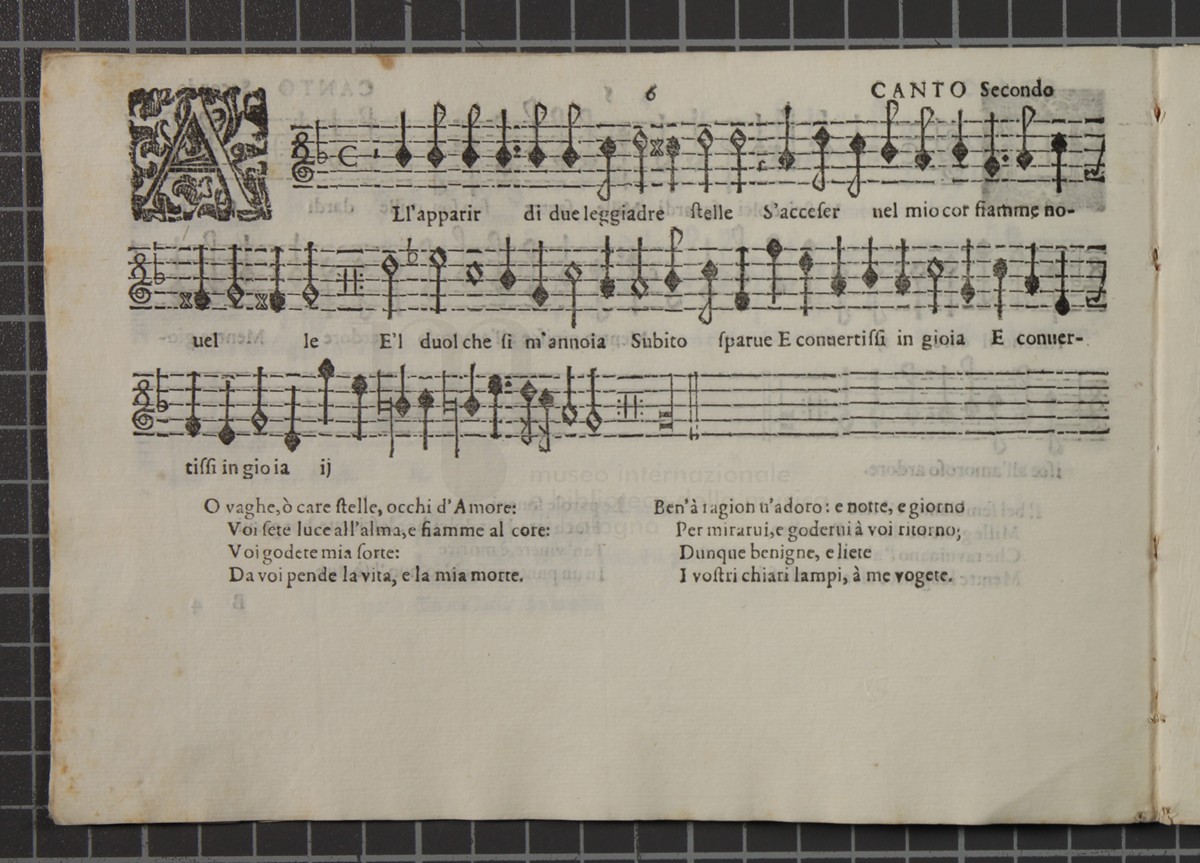 6
CANTO Secondo
ALl'apparir di due leggiadre ſtelle S'acceſer nel mio cor fiamme no-
uel le E'l duol che ſi m'annoia Subito ſparue E conuertiſſi in gioia E conuer-
tiſſi in gioia ij
O vaghe, ò care ſtelle, occhi d'Amore:
Voi ſete luce all'alma, e fiamme al core:
Voi godete mia ſorte:
Da voi pende la vita, e la mia morte.
Ben'à ragion u'adoro: e notte, e giorno
Per mirarui, e goderui à voi ritorno;
Dunque benigne, e liete
I voſtri chiari lampi, à me vogete.
museo internazionale
e biblioteca della musica